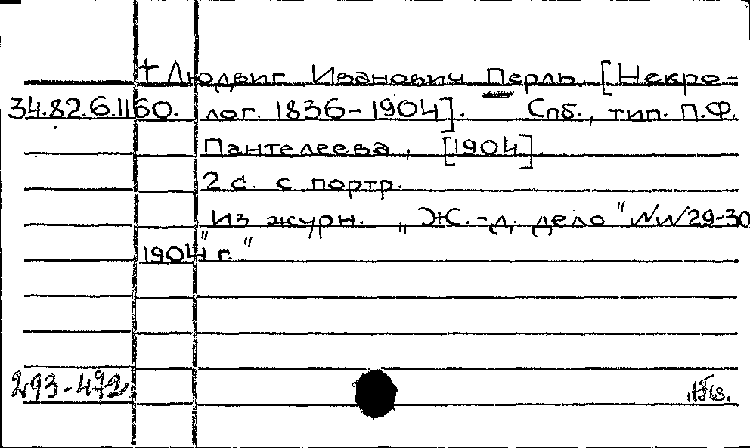 † Людвиг Иванович Перль [Некро-
34.82.6.1160. лог. 1836-1904]. Спб., тип. П.Ф.
Пантелеева, [1904]
2 с. с портр.
Из журн. „Ж.-д. дело" №№ 29-30
1904" г."
293-472